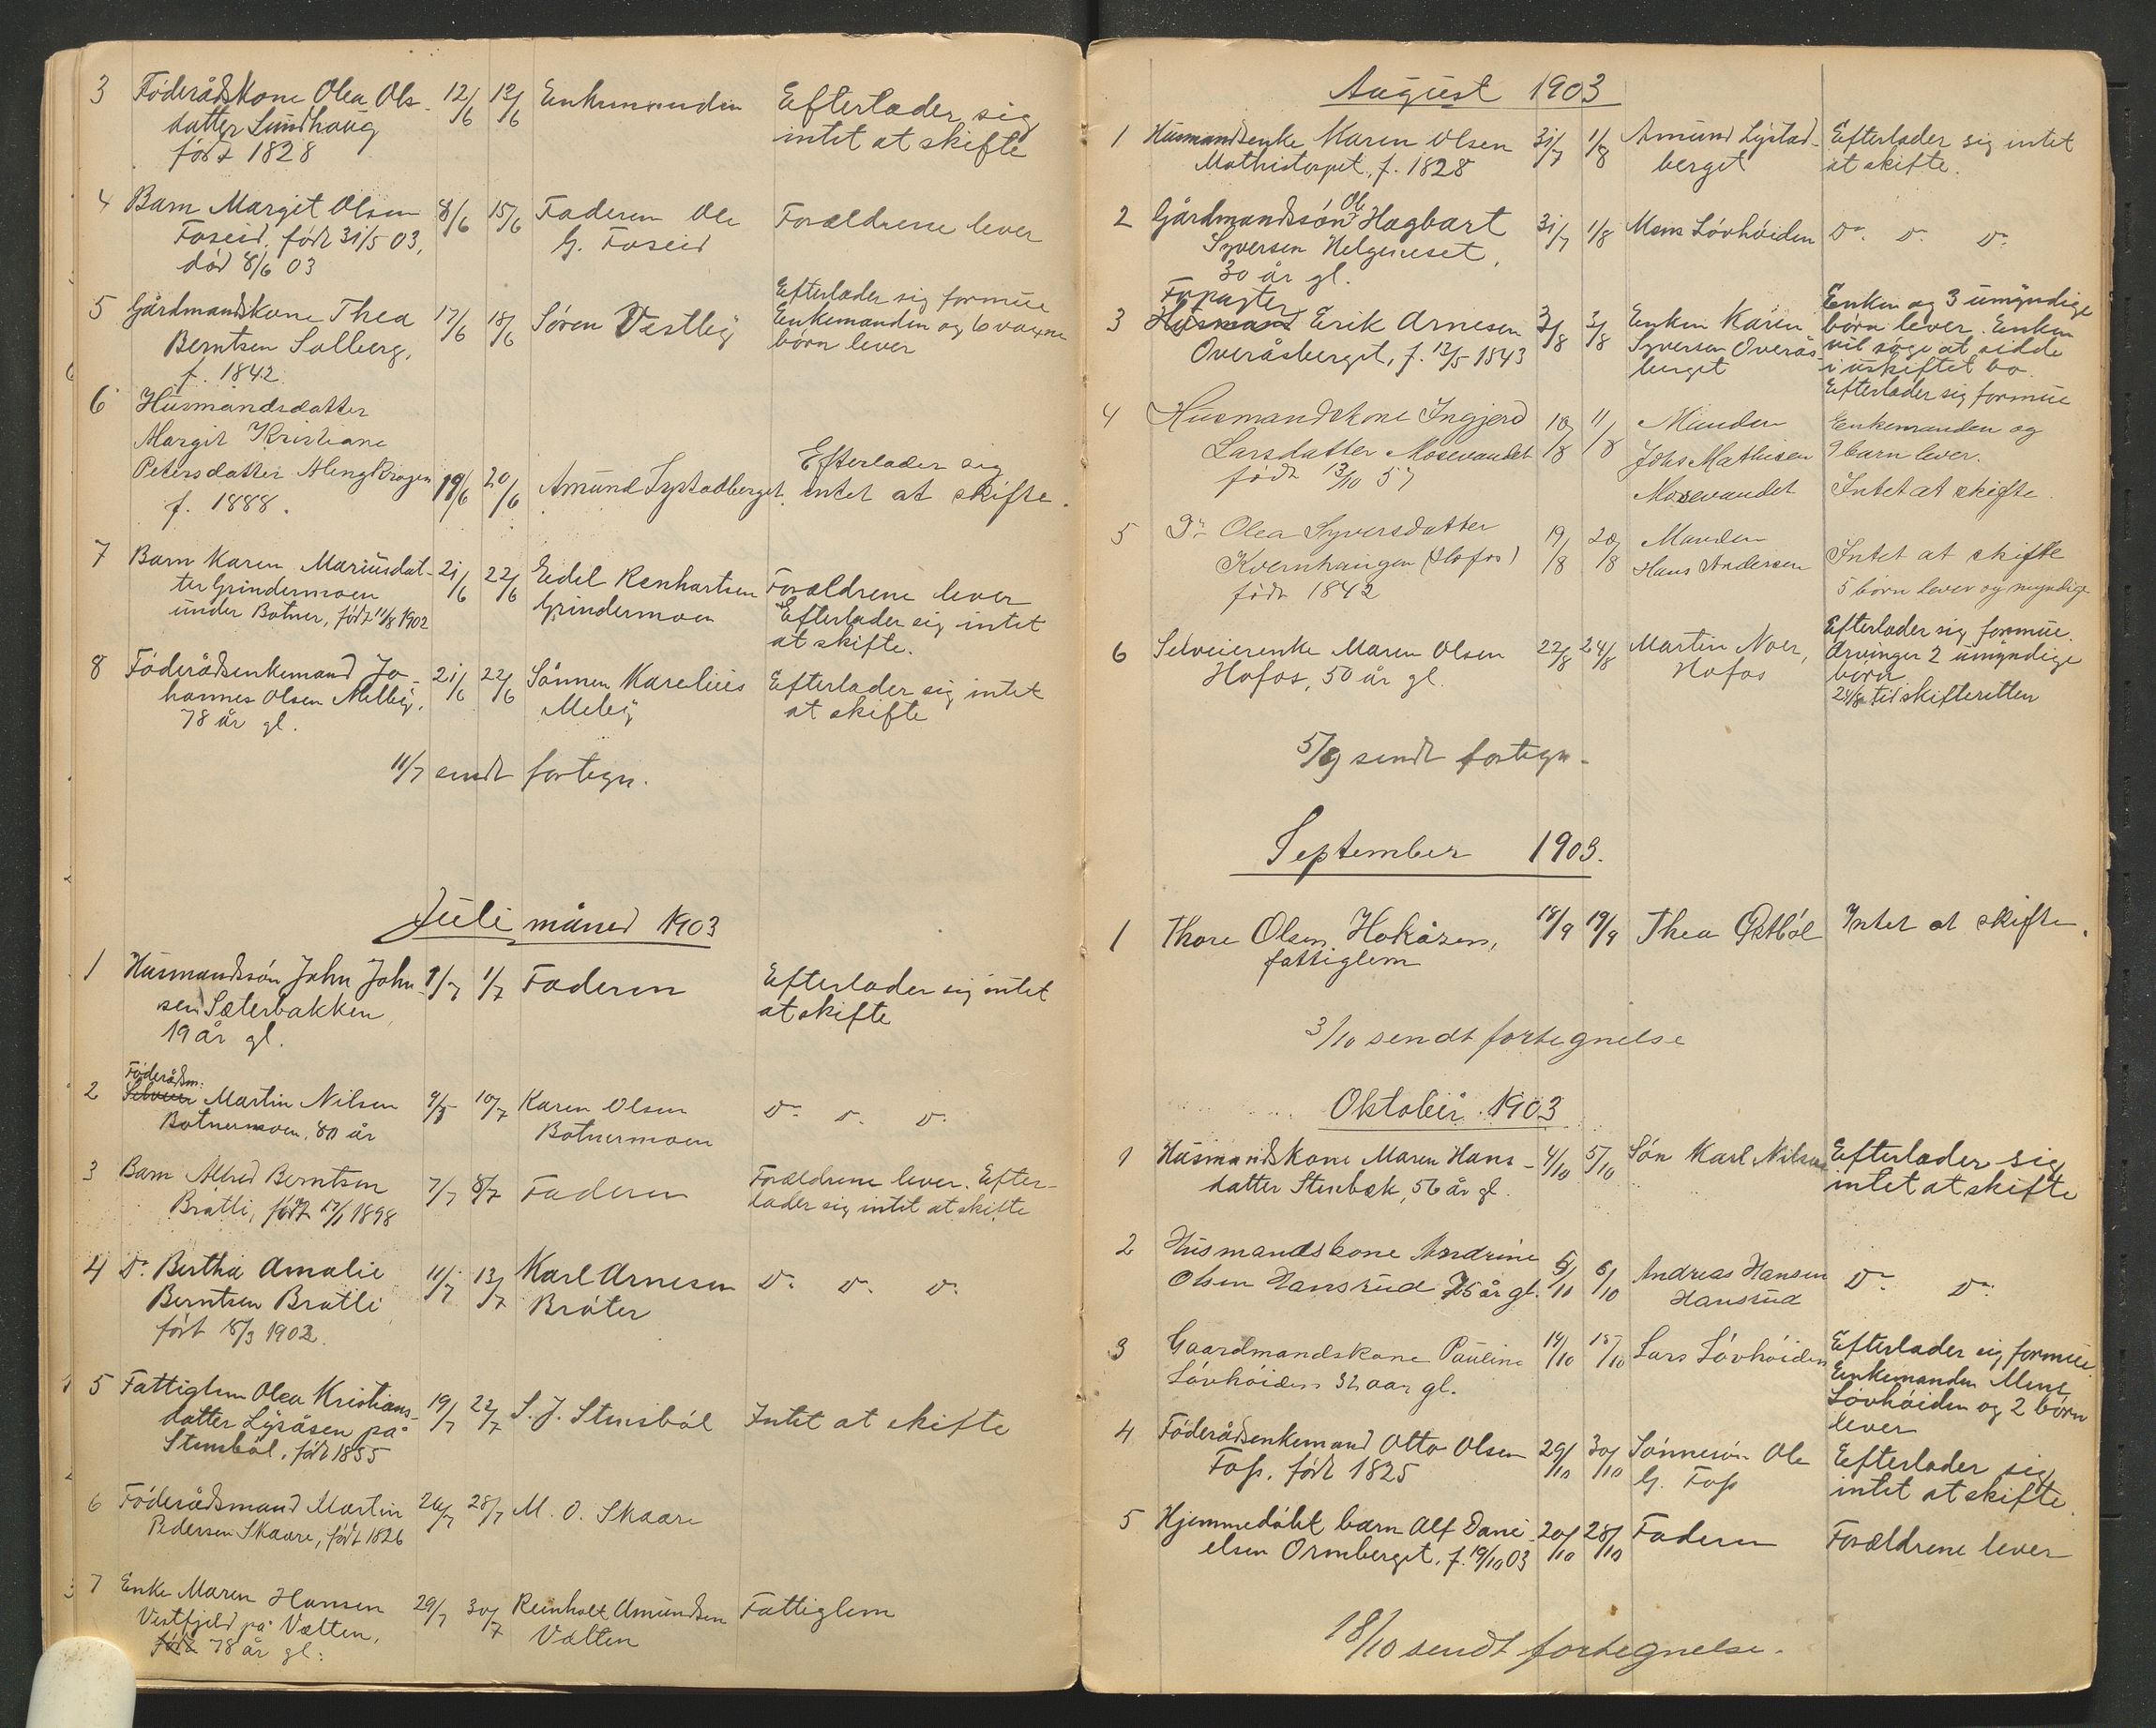 3 Föderådskone Olea Ols- 12/6 13/6 Enkemanden Efterlader sig
datter Sundhaug intet at skifte
født 1828
4 Barn Margit Olsen 8/6 15/6 Faderen Ole Forældrene lever
Foseid, født 31/5 03, G. Foseid
död 8/6 03
5 Gårdmandskone Thea 17/6 18/6 Søren Vestby Efterlader sig formue
Berntsen Solberg, Enkemanden og 6 voxne
f. 1842. börn lever
6 Husmandsdatter
Margit Kristiane
Petersdatter Alengkrogen 19/6 20/6 Amund Lystadberget. Efterlader sig
f. 1888. intet at skifte.
7 Barn Karen Mariusdat- 21/6 22/6 Edel Renhartsen Forældrene lever
ter Grindermoen Grindermoen Efterlader sig intet
under Botner, født 11/8 1902 at skifte.
8 Föderådsenkemand Jo- 21/6 22/6 Sønnen Karelius Efterlader sig intet
hannes Olsen Melby, Meby at skifte
78 år gl.
11/7 sendt fortegn.
Juli måned 1903
1 Husmandssön John John- 1/7 1/7 Faderen Efterlader sig intet
sen Sæterbakken, at skifte
19 år gl.
Föderådsm:
2 Selveier Martin Nilsen 9/7 10/7 Karen Olsen Do. Do. Do.
Botnermoen, 80 år Botnermoen
3 Barn Alfred Berntsen 7/7 8/7 Faderen Forældrene lever. Efter-
Bråtli, født 17/1 1898 lader sig intet at skifte
4 Do. Bertha Amalie 11/7 13/7 Karl Arnesen Do. Do. Do.
Berntsen Bråtli Bråter
født 8/3 1902.
5 Fattiglem Olea Kristians- 19/7 22/7 S. J. Stensböl Intet at skifte
datter Lysåsen på
Stensböl, född 1855
6 Föderådsmand Martin 26/7 28/7 M. O. Skaare
Pedersen Skaare, født 1826
7 Enke Maren Hansen 29/7 30/7 Reinholt Amundsen Fattiglem
Vestfjeld på Vælten, Vælten
født 78 år gl:
August 1903
1 Husmandsenke Maren Olsen 31/7 1/8 Amund Lystad- Efterlader sig intet
Mathistorpet, f. 1828 berget at skifte.
Ole
2 Gårdmandssön Hagbart 31/7 1/8 Mons Lövhöiden Do. Do. Do.
Syversen Helgeneset,
30 år gl.
Forpagter
3 Husmand Erik Arnesen 3/8 3/8 Enken Karen Enken og 3 umyndige
Overåsberget, f. 12/5 1843 Syversen Overås- börn lever. Enken
berget vil söge at sidde
i uskiftet bo.
Efterlader sig formue
4 Husmandskone Ingjerd 10/8 11/8 Manden Enkemanden og
Larsdatter Mosevandet Johs Mathisen 9 barn lever.
født 13/10 57 Mosevandet Intet at skifte.
5 Do Olea Syversdatter 19/8 20/8 Manden Intet at skifte
Kvernhaugen (Hofos) Hans Andersen 5 börn lever og myndige
født 1842
6 Selveierenke Maren Olsen 22/8 24/8 Martin Noer, Efterlader sig formue.
Hofos, 50 år gl. Hofos Arvinger 2 umyndige
börn
24/8 til skifteretten
5/9 sendt fortegn-
September 1903.
1 Thore Olsen Hokåsen, 18/9 19/9 Thea Østböl Intet at skifte.
fattiglem
3/10 sendt fortegnelse
Oktober 1903
1 Husmandskone Maren Hans- 4/10 5/10 Sön Karl Nilsen Efterlader sig
datter Stenbæk, 56 år gl. intet at skifte
2 Husmandskone Andrine 5/10 6/10 Andreas Hansen Do. Do.
Olsen Hansrud 75 år gl. Hansrud
3 Gaardmandskone Pauline 14/10 15/10 Lars Lövhöiden Efterlader sig formue.
Lövhöiden 32 aar gl. Enkemanden Mens
Lövhöiden og 2 börn
lever
4 Föderådsenkemand Otto Olsen 29/10 30/10 Sönnesön Ole Efterlader sig
Foss, født 1825 G. Foss intet at skifte.
5 Hjemmedöbt barn Alf Dani- 20/10 28/10 Faderen Forældrene lever
elsen Ormberget, f. 19/10 03
18/10 sendt fortegnelse.